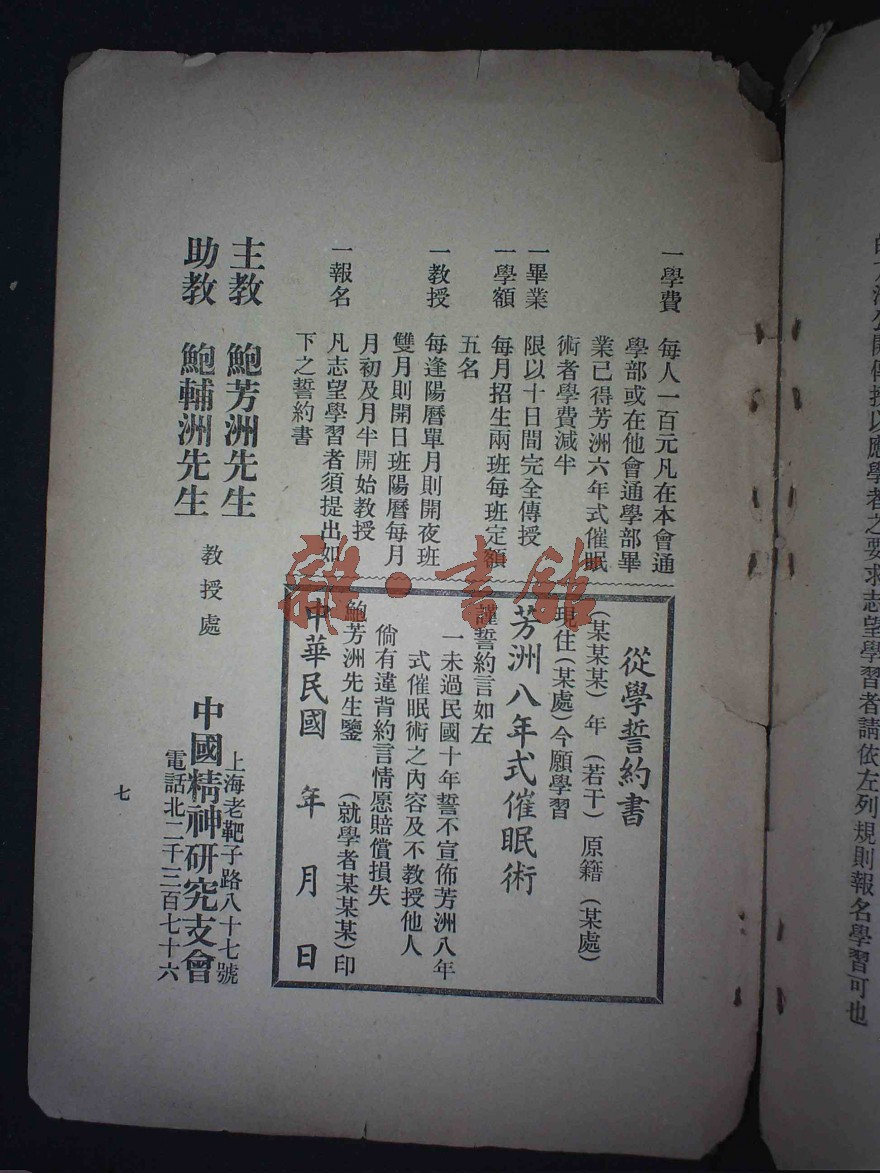 師一方法公開傳授以應學者之要求志望學習者請依左列規則報名學習可也
一學費 每人一百元凡在本會通
學部或在他會通學部畢
業已得芳洲六年式催眠
術者學費減半
一畢業 限以十日間完全傳授
一學額 每月招生兩班每班定額
五名
一教授 每逢陽曆單月則開夜班
雙月則開日班陽曆每月
月初及月半開始教授
一報名 凡志望學習者須提出如
下之誓約書
從學誓約書
(某某某)年(若干)原籍(某處)
現住(某處)今願學習
芳洲八年式催眠術
謹誓約言如左
一未過民國十年誓不宣佈芳洲八年
式催眠術之內容及不教授他人
倘有違背約言情愿賠償損失
鮑芳洲先生鑒 (就學者某某某)印
中華民國 年 月 日
主教 鮑芳洲先生
助教 鮑輔洲先生
教授處 中國精神研究支會
上海老靶子路八十七號
電話北二千三百七十六
七
雜·書館